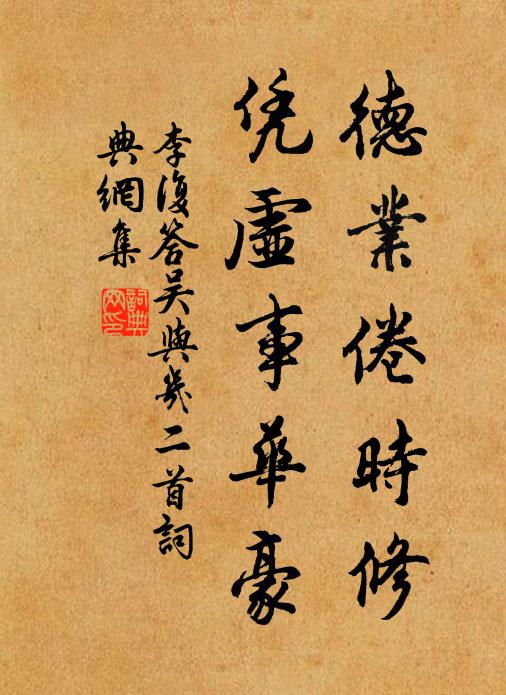 德業倦時修
凭虛事華豪
李復答吳與幾二首詞
典網集
詞典網印